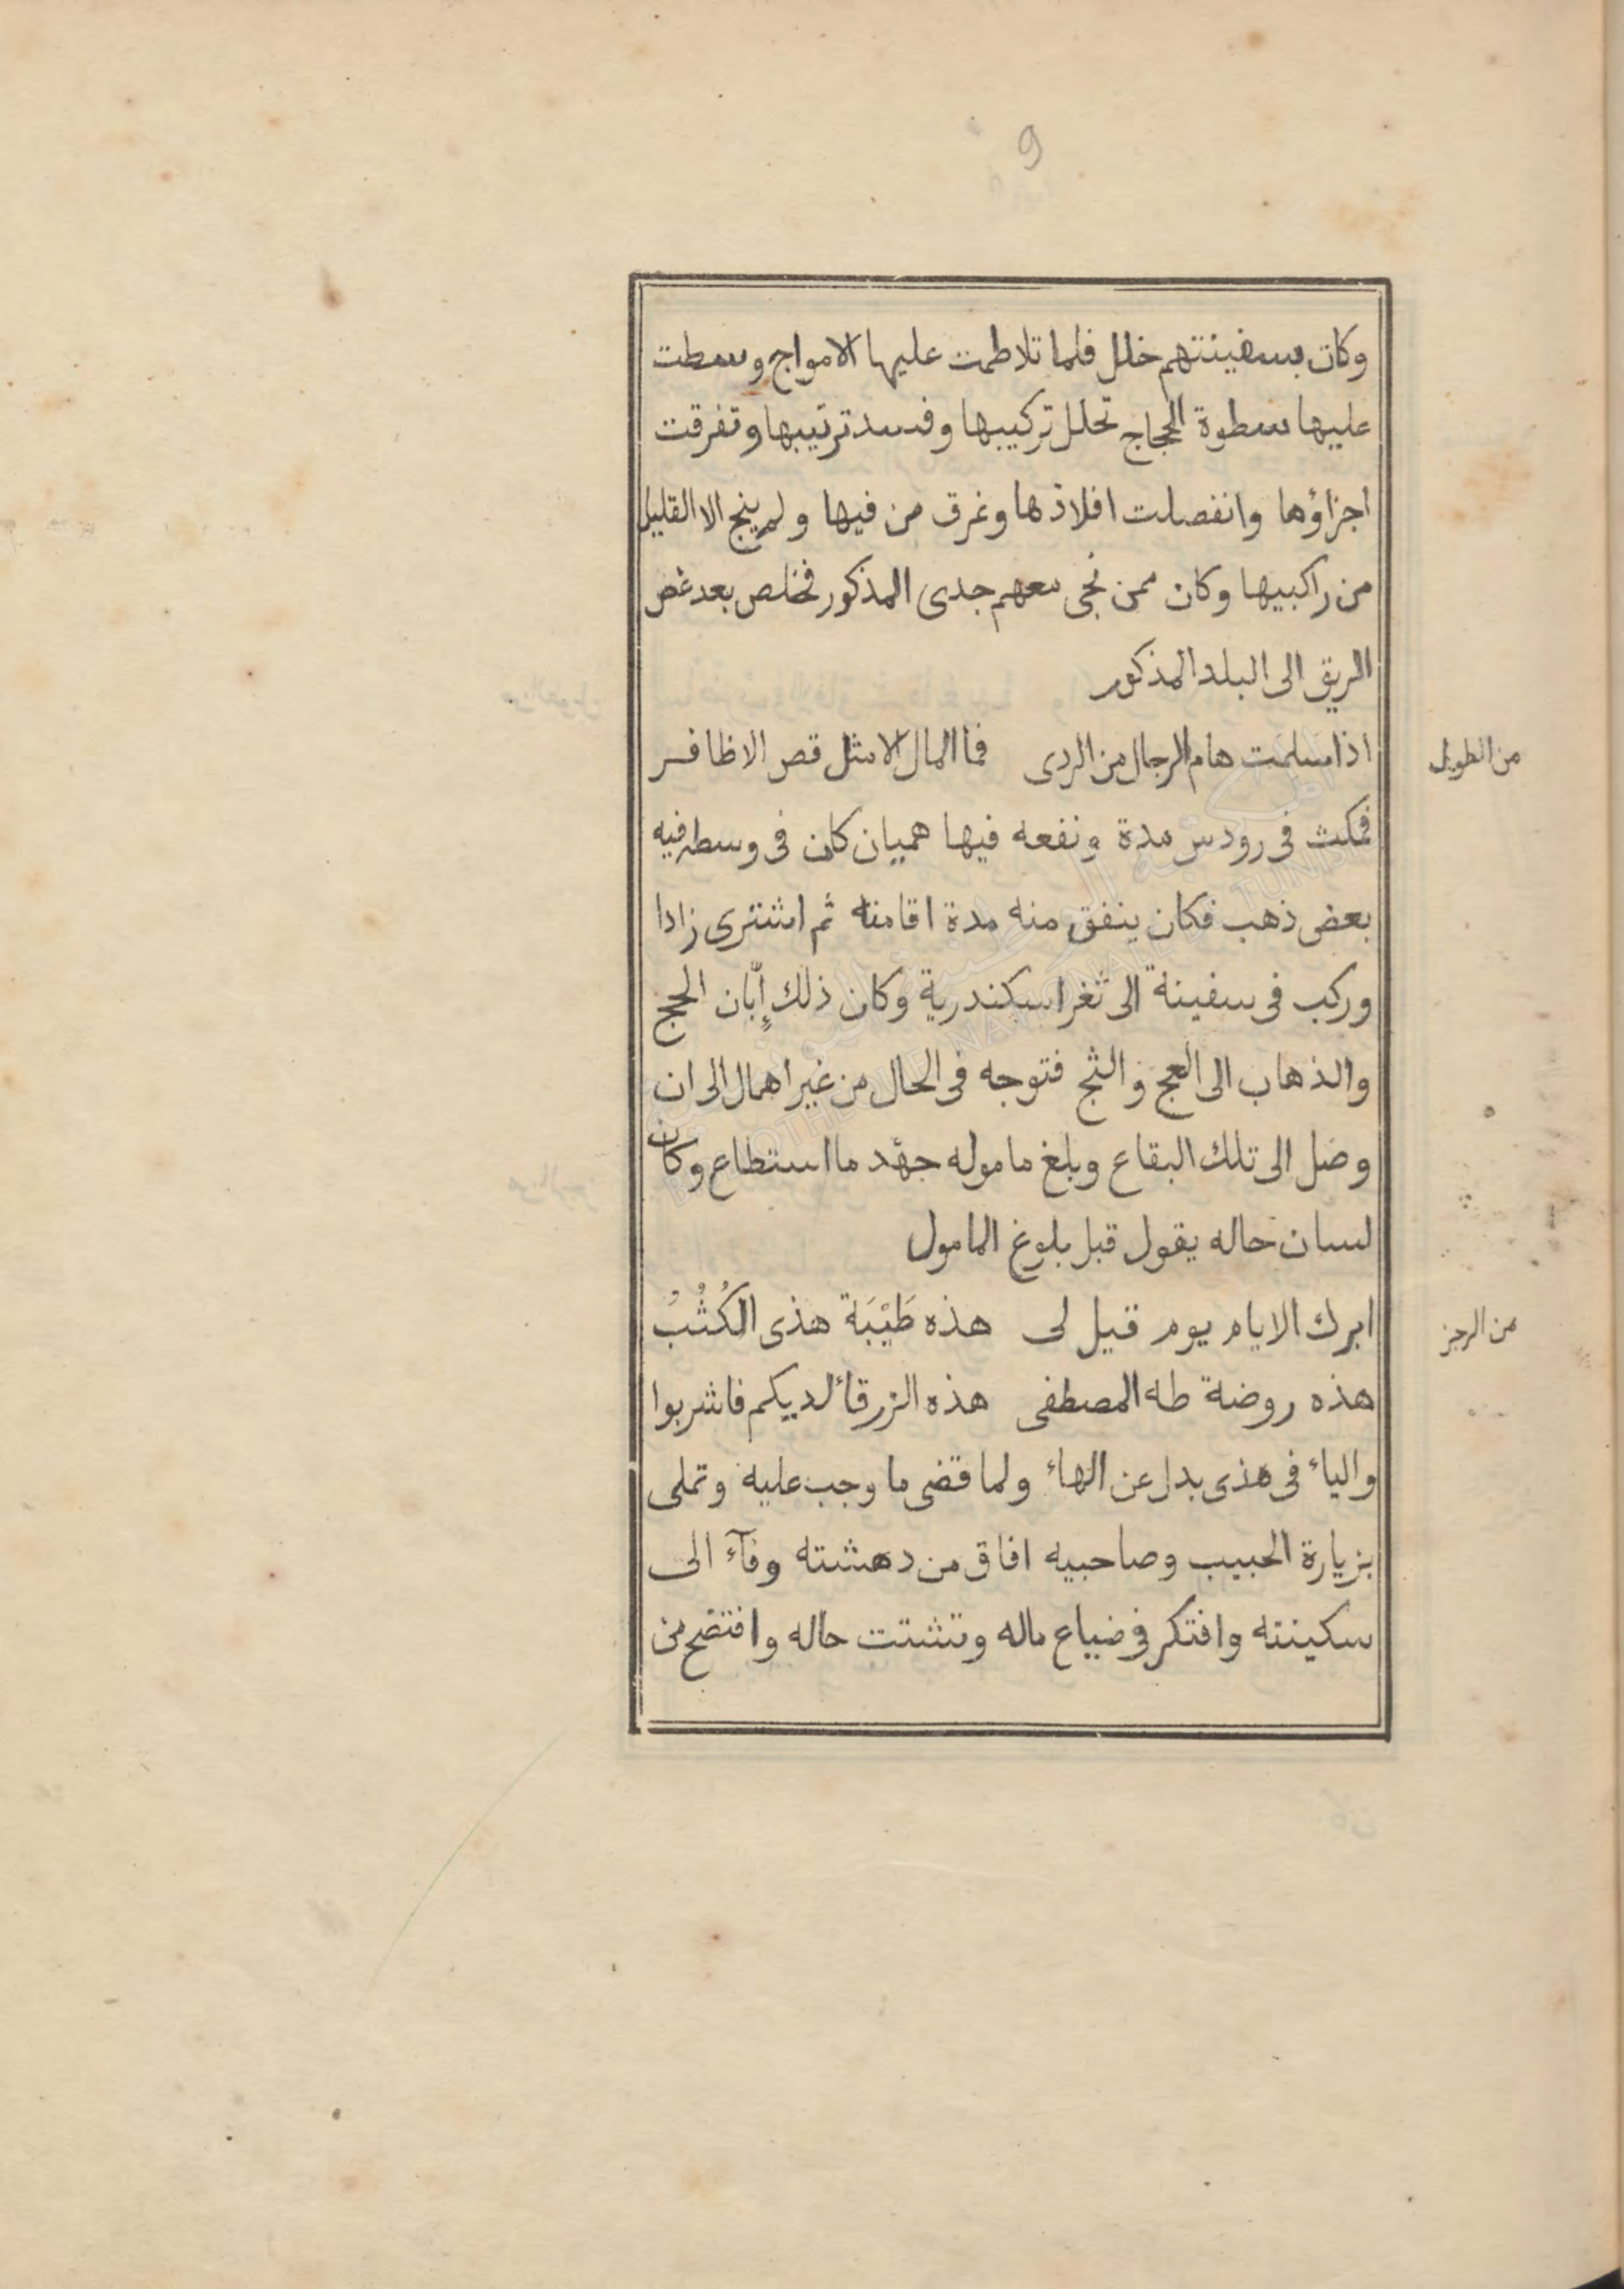 9
وكان بسفينتهم خلل فلما تلاطمت عليها الامواج وسطت
عليها سطوة الحجاج تحلل تركيبها وفسد ترتيبها وتفرقت
اجزاؤها وانفصلت افلاذها وغرق من فيها ولم ينج الا القليل
من راكبيها وكان ممن نجى معهم جدى المذكور فخلص بعد غص
الريق الى البلد المذكور
اذا سلمت هام الرجال من الردى فما المال الا مثل قص الاظافر
من الطويل
فمكث فى رودس مدة ونفعه فيها هميان كان فى وسطه فيه
بعض ذهب فكان ينفق منه مدة اقامته ثم اشترى زادا
وركب فى سفينة الى ثغر اسكندرية وكان ذلك إبّان الحج
والذهاب الى العج والثج فتوجه فى الحال من غير اهمال الى ان
وصل الى تلك البقاع وبلغ ماموله جهد ما استطاع وكان
لسان حاله يقول قبل بلوغ المامول
ابرك الايام يوم قيل لى هذه طَيْبَة هذى الكُثُبُ
من الرجز
هذه روضة طه المصطفى هذه الزرقاء لديكم فاشربوا
والياء فى هذى بدل عن الهاء ولما قضى ما وجب عليه وتملى
بزيارة الحبيب وصاحبيه افاق من دهشته وفآء الى
سكينته وافتكر فى ضياع ماله وتشتت حاله وافتضح من